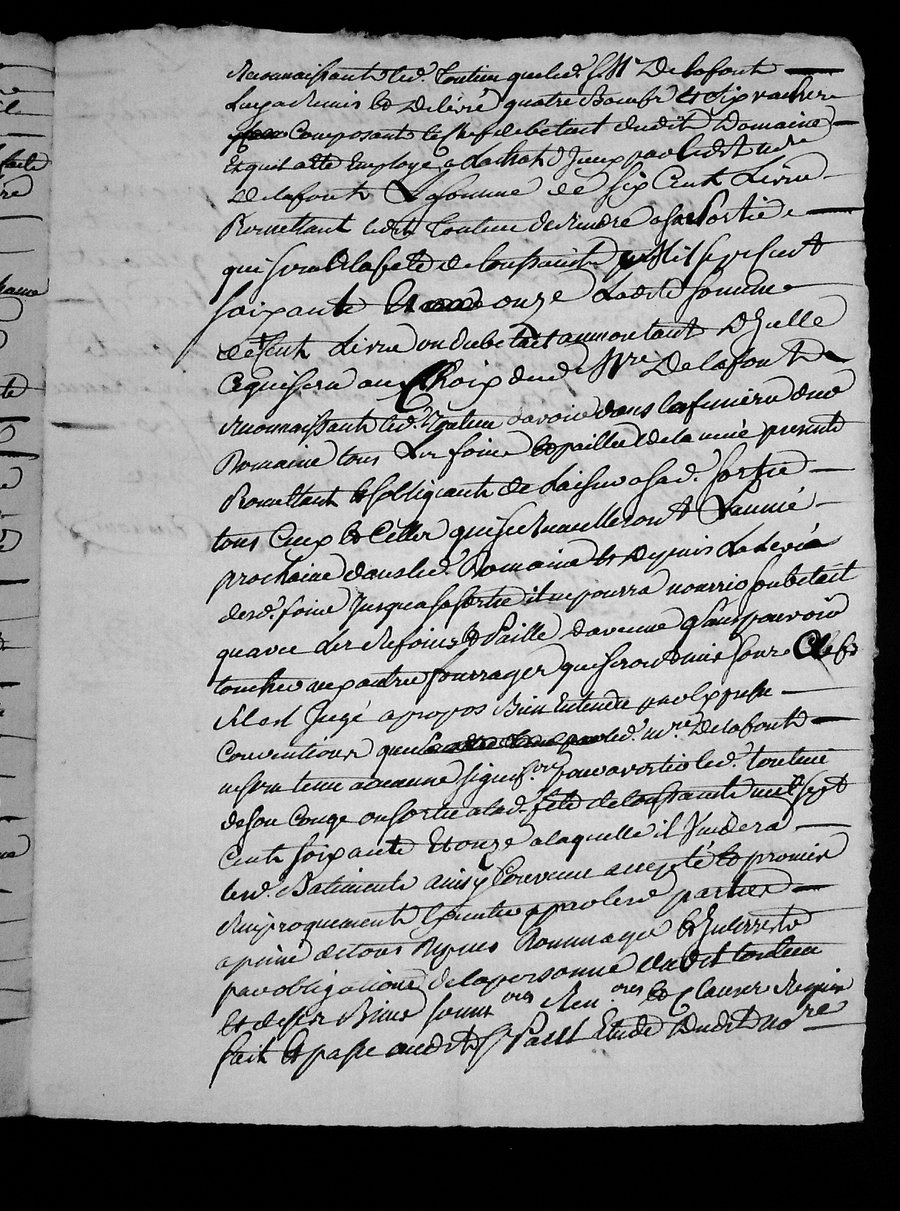 Reconnaissant led. toutun que led. S. Mr. Delafont
Luy a Remis et Delivré quatre Boeufs et six vaches
Composant le Chef de betail dudit Domaine
Et quil a ete Employé a Lachat d'yceux par ledit
Delafont La somme de six Cent Livres
Promettant ledit toutun de Rendre a sa sortie
qui sera a la fete de toussaint mil sept cent
soixante Et onze Ladite somme
de six Cent Livres ou du betail au montant D'ycelle
Ce qui sera au Choix dud. Mre. Delafont
Reconnaissant led. toutun davoir dans les fenieres dud.
Domaine tous Les foins et pailles de la née presente
Promettant et sobligeant de Laisser a sad. sortie
tous Ceux et Celles qui se Recuelleront L'année
prochaine dans led. Domaine et Depuis La Levée
desd. foins Jusqua sa sortie il ne pourra nourrir son betail
quavec des Refoins et Paille d'avenne sans pouvoir
toucher aux autres fourrages qui seront mis sous Clefs
sil est Jugé a propos Bien Entendu par Expresse
Convention que led. mre. Delafont
ne sera tenu a aucune signifion pour avertir led. toutun
de son Congé ou sortie a lad. fete de toussaint mil sept
Cent soixante Et onze a laquelle il Vuidera
lesd. Batiments ainsy Convenu accepté et promis
Reciproquement Executer par lesd. parties
a peine de tous Depens Dommages et Interrests
par obligation de la personne dudit toutun
Et de ses Biens soum.ons Ren.ons et Clauses Requises
fait et passé audit St. Paul Etude dudit no.re